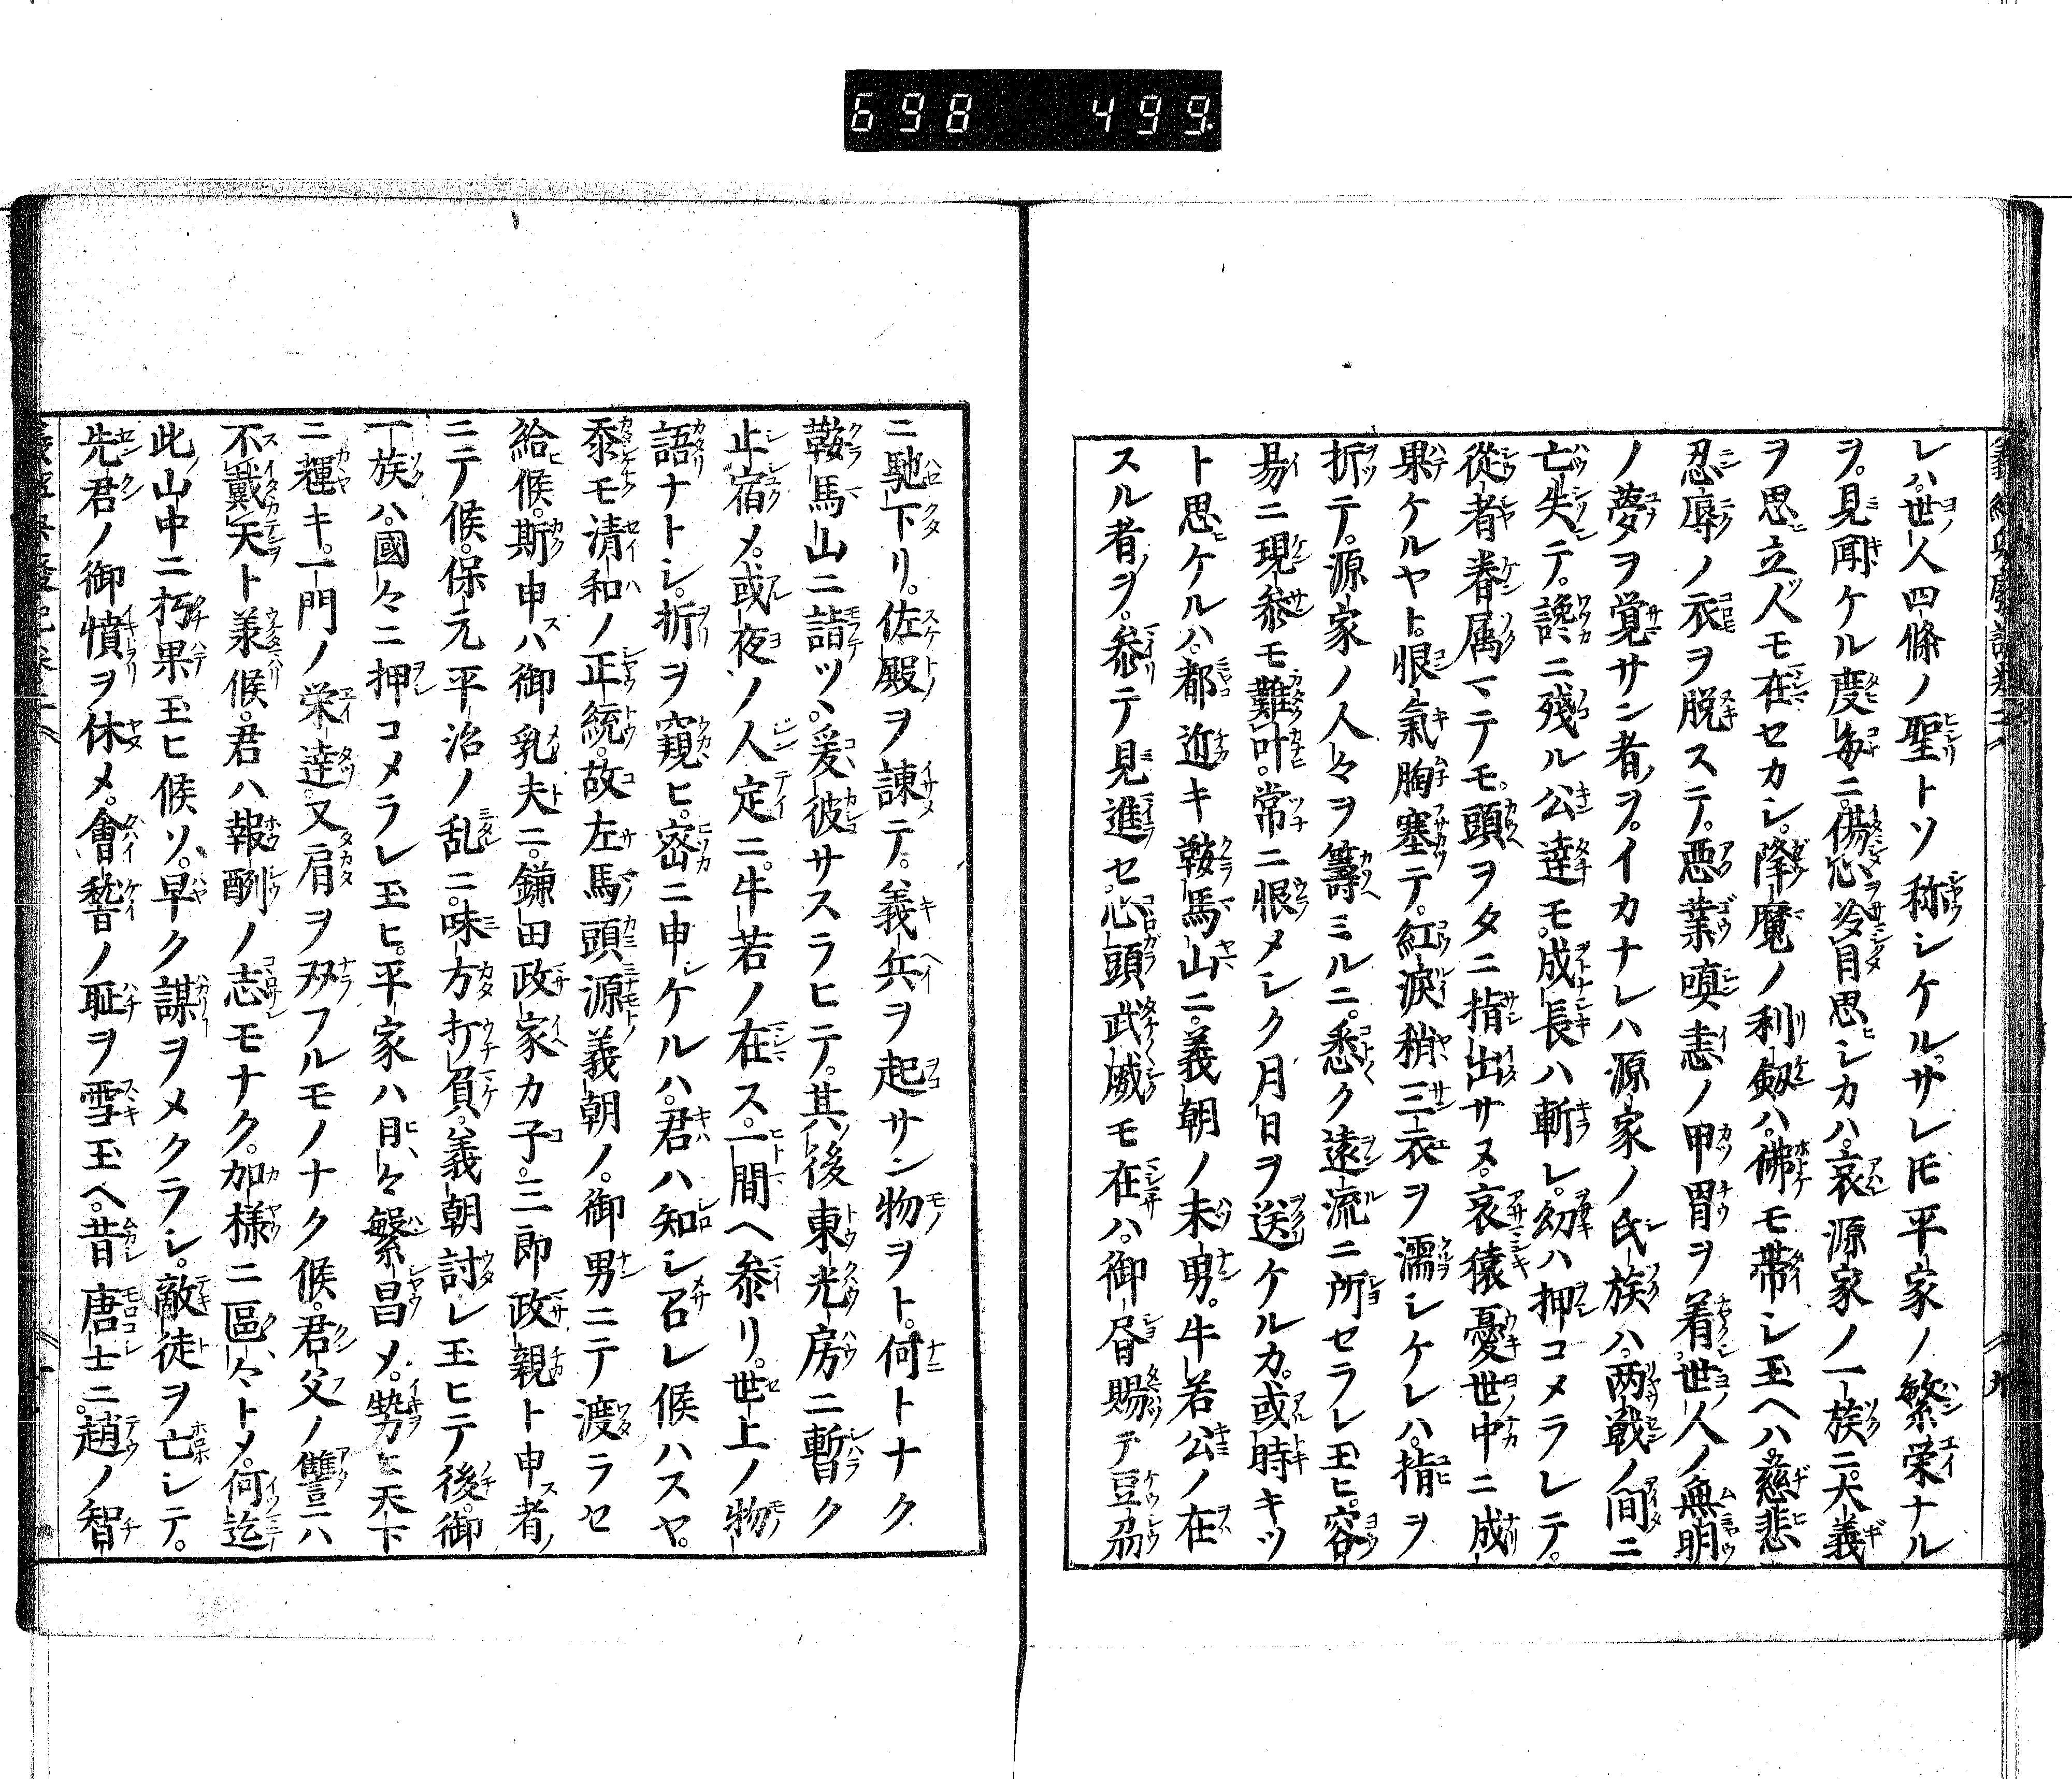 698 499.
レハ。世人四條ノ聖トソ称シケル。サレ𪜈平家ノ繁栄ナル
ヲ。見聞ケル度毎ニ。傷心冷目思ヒシカハ。哀源家ノ一族ニ。大義
ヲ思ヒ立人モ在セカシ。降魔ノ利劔ハ。佛モ帯シ玉ヘハ。慈悲
忍辱ノ衣ヲ脱ステ。悪業嗔恚ノ甲冑ヲ着。世人ノ無明
ノ夢ヲ覚サン者ヲ。イカナレハ源家ノ氏族ハ。両戦ノ間ニ
亡失テ。纔ニ残ル公達モ。成長ハ斬レ。幼ハ押コメラレテ。
從者眷属マテモ。頭ヲタニ指出サヌ。哀猿憂世中ニ成
果ケルヤト。恨氣胸塞テ。紅涙稍三衣ヲ濡シケレハ。指ヲ
折テ。源家ノ人々ヲ籌ミルニ。悉ク遠流ニ所セラレ玉ヒ。容
易ニ現参モ難叶。常ニ恨メシク月日ヲ送ケルカ。或時キツ
ト思ヒケルハ。都近キ鞍馬山ニ。義朝ノ末男。牛若公ノ在
スル者ヲ。参テ見進セ。心頭武威モ在ハ。御眉賜テ豆刕
ニ馳下リ。佐殿ヲ諫テ。義兵ヲ起サン物ヲト。何トナク
鞍馬山ニ詣ツヽ。爰彼サスラヒテ。其後東光房ニ暫ク
止宿メ。或夜ノ人定ニ。牛若ノ在ス。一間ヘ参リ。世上ノ物
語ナトシ。折ヲ窺ヒ。密ニ申シケルハ。君ハ知シ召レ候ハスヤ。
忝モ清和ノ正統。故左馬頭源義朝ノ。御男ニテ渡ラセ
給候。斯申ハ御乳夫ニ。鎌田政家カ子。三郎政親ト申者
ニテ候。保元平治ノ乱ニ。味方打負。義朝討レ玉ヒテ後。御
一族ハ。國々ニ押コメラレ玉ヒ。平家ハ日々繁昌メ。勢ヒ天下
ニ輝キ。一門ノ栄達。又肩ヲ双フルモノナク候。君父ノ讐ニハ
不戴天ト羕候。君ハ報酬ノ志モナク。加様ニ區々トメ。何迄
此山中ニ朽果玉ヒ候ソ。早ク謀ヲメクラシ。敵徒ヲ亡シテ。
先君ノ御憤ヲ休メ。會稽ノ耻ヲ雪玉ヘ。昔唐士ニ。趙ノ智